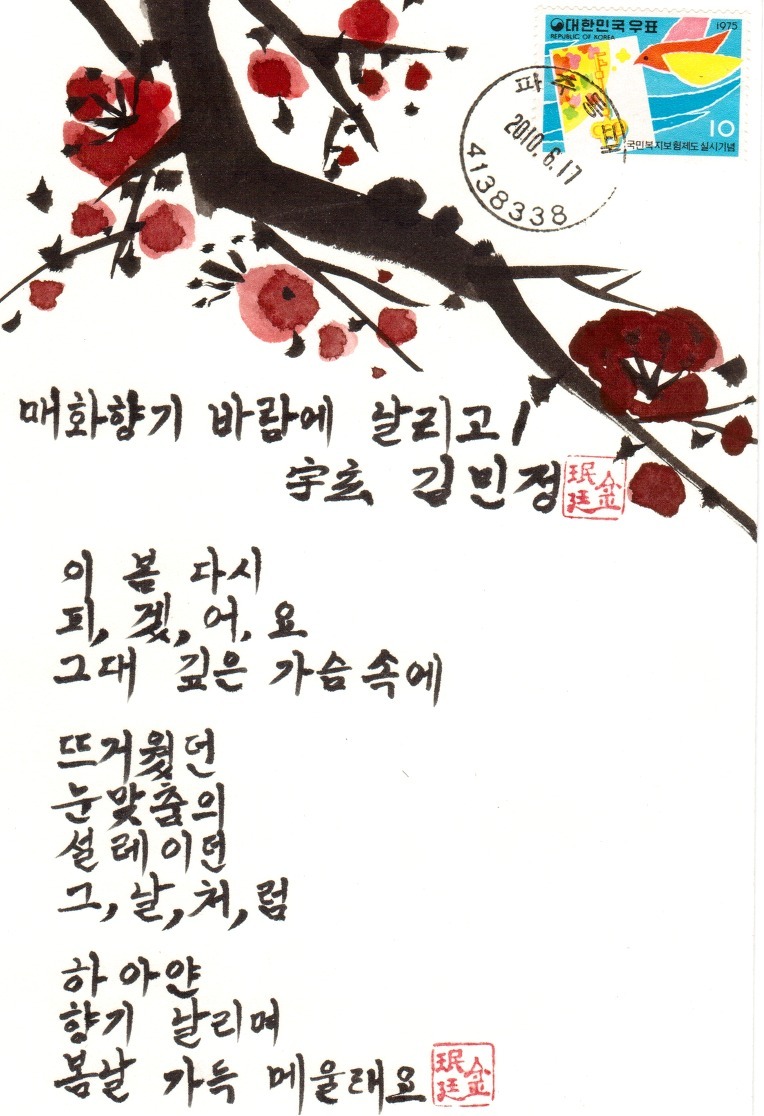 대한민국우표 1975
REPUBLIC OF KOREA
10
국민복지보험제도실시기념
2010.6.17
4138338
매화향기 바람에 날리고/
宇玄 김민정
珉廷 金
이 봄 다시
피, 겠, 어, 요
그대 깊은 가슴속에
뜨거웠던
눈맞춤의
설레이던
그, 날, 처, 럼
하아얀
향기 날리며
봄날 가득 메울래요
珉廷 金